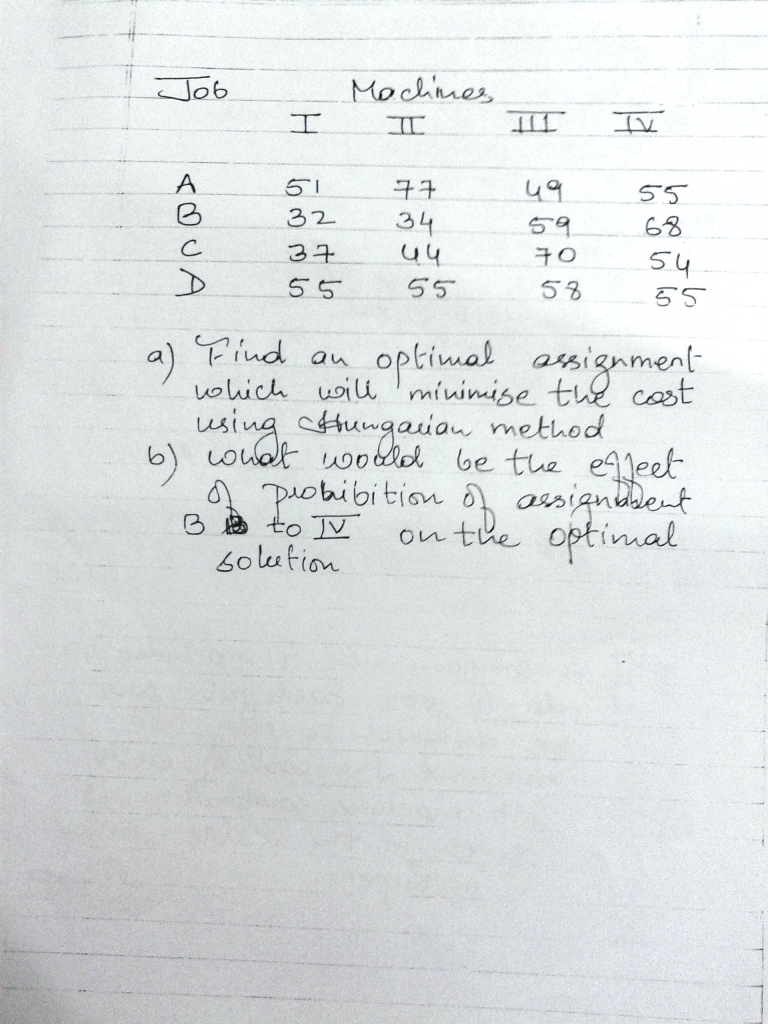 Job Machines
I II III IV
A 51 77 49 55
B 32 34 59 68
C 37 44 70 54
D 55 55 58 55
a) Find an optimal assignment
which will minimise the cost
using Hungarian method
b) what would be the effect
of prohibition of assignment
B to IV on the optimal
solution